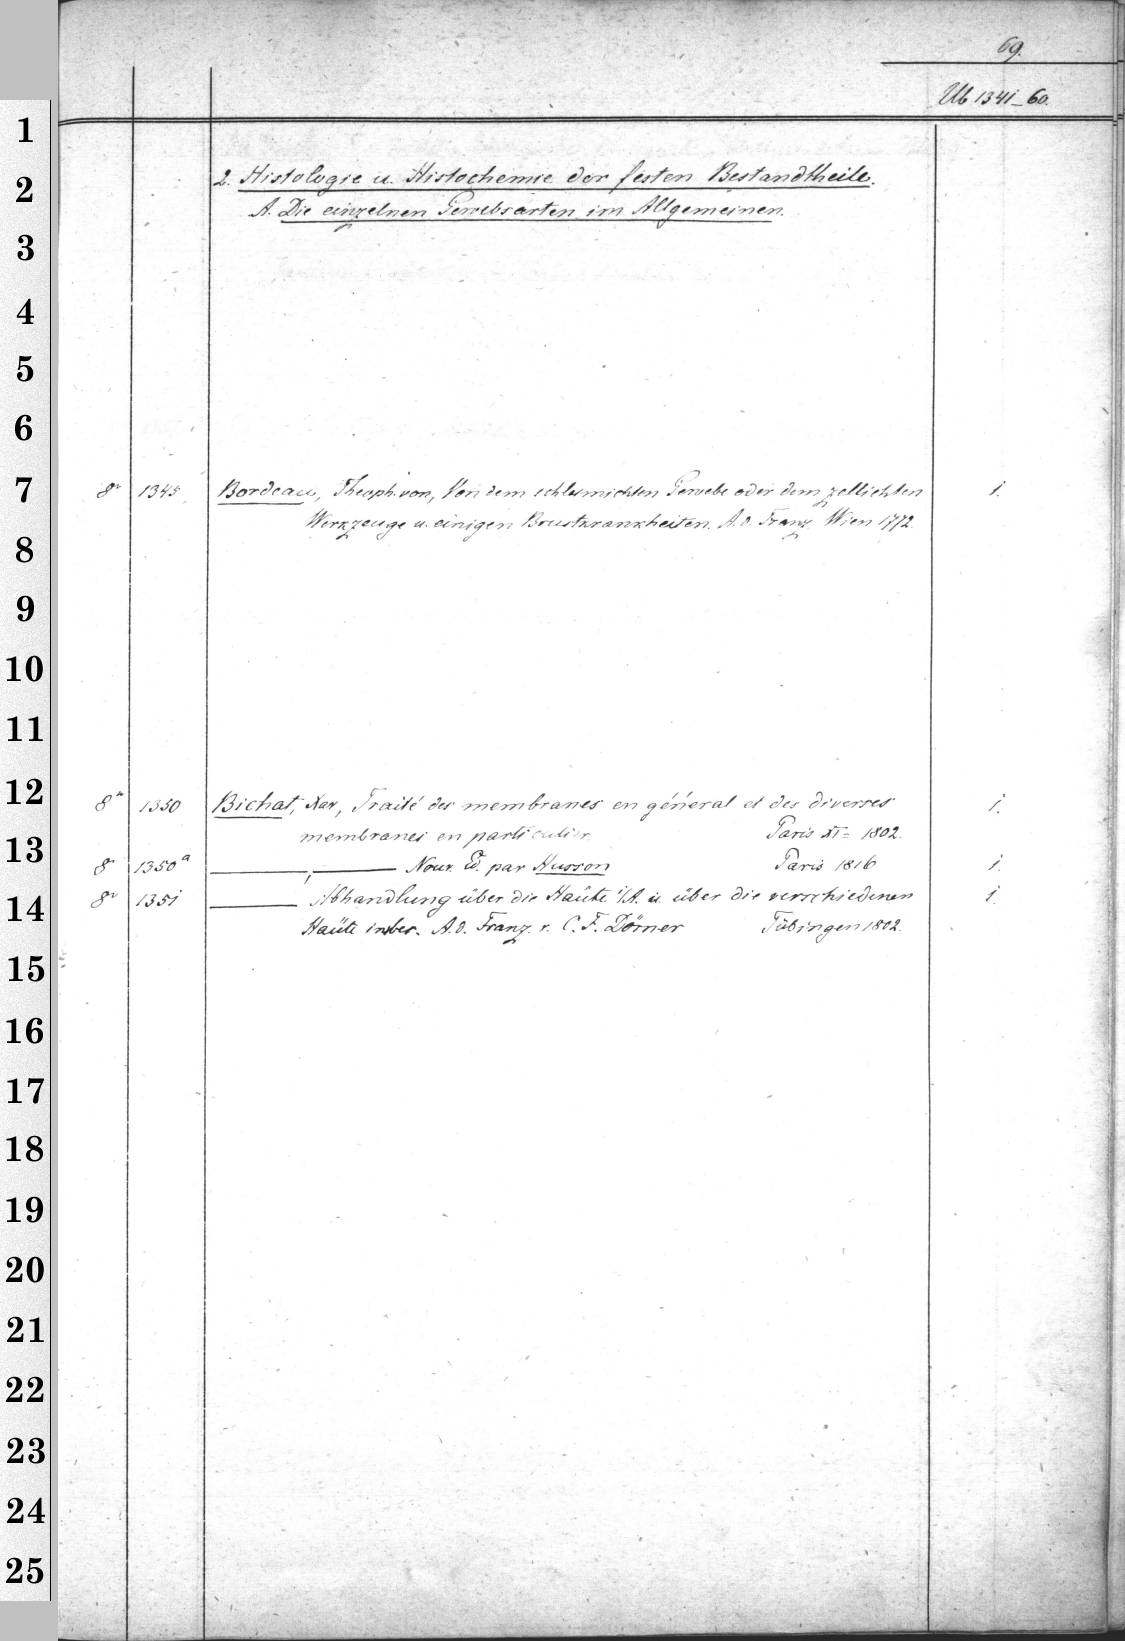 69.
Ub 1341-60.
2. Histologie u. Histochemie der festen Bestandtheile.
A. Die einzelnen Gewebsarten im Allgemeinen.
8° 1345 Bordeau, Theoph. von, Von dem schleimichten Gewebe oder dem zellichten 1.
Werkzeuge u. einigen Brustkrankheiten. A. d. Franz. Wien 1772.
8° 1350 Bichat, Xav., Traité des membranes en général et des diverses 1.
membranes en particulier. Paris XI = 1802.
8° 1350a ——, —— Nouv. Ed. par Husson Paris 1816 1.
8° 1351 —— Abhandlung über die Häute i/A. u. über die verschiedenen 1.
Häute insbes. A. d. Franz. v. C. F. Dörner Tübingen 1802.
1
2
3
4
5
6
7
8
9
10
11
12
13
14
15
16
17
18
19
20
21
22
23
24
25